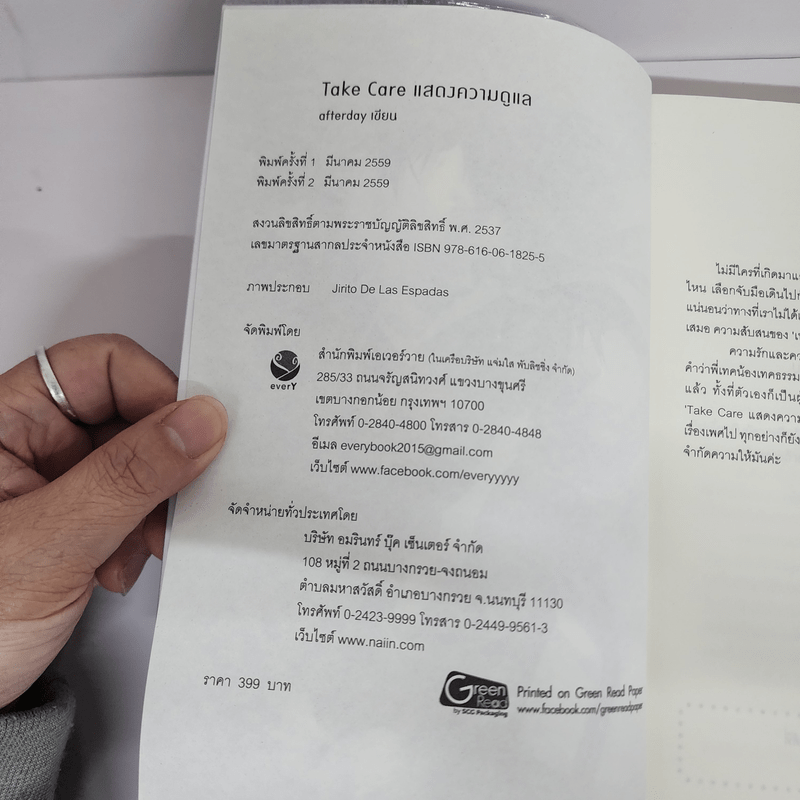 Take Care แสดงความดูแล
afterday เขียน
พิมพ์ครั้งที่ 1 มีนาคม 2559
พิมพ์ครั้งที่ 2 มีนาคม 2559
สงวนลิขสิทธิ์ตามพระราชบัญญัติลิขสิทธิ์ พ.ศ. 2537
เลขมาตรฐานสากลประจำหนังสือ ISBN 978-616-06-1825-5
ภาพประกอบ Jirito De Las Espadas
จัดพิมพ์โดย
everY
สำนักพิมพ์เอเวอร์วาย (ในเครือบริษัท แจ่มใส พับลิชชิ่ง จำกัด)
285/33 ถนนจรัญสนิทวงศ์ แขวงบางขุนศรี
เขตบางกอกน้อย กรุงเทพฯ 10700
โทรศัพท์ 0-2840-4800 โทรสาร 0-2840-4848
อีเมล everybook2015@gmail.com
เว็บไซต์ www.facebook.com/everyyyyy
จัดจำหน่ายทั่วประเทศโดย
บริษัท อมรินทร์ บุ๊ค เซ็นเตอร์ จำกัด
108 หมู่ที่ 2 ถนนบางกรวย-จงถนอม
ตำบลมหาสวัสดิ์ อำเภอบางกรวย จ.นนทบุรี 11130
โทรศัพท์ 0-2423-9999 โทรสาร 0-2449-9561-3
เว็บไซต์ www.naiin.com
ราคา 399 บาท
Green Read
by SCG Packaging
Printed on Green Read Paper
www.facebook.com/greenreadpaper
ไม่มีใครที่เกิดมาแ
ไหน เลือกจับมือเดินไป
แน่นอนว่าทางที่เราไม่ได้
เสมอ ความสับสนของ
ความรักและคว
คำว่าพี่เทคน้องเทคธรรม
แล้ว ทั้งที่ตัวเองก็เป็น
'Take Care แสดงความ
เรื่องเพศไป ทุกอย่างก็ยัง
จำกัดความให้มันค่ะ